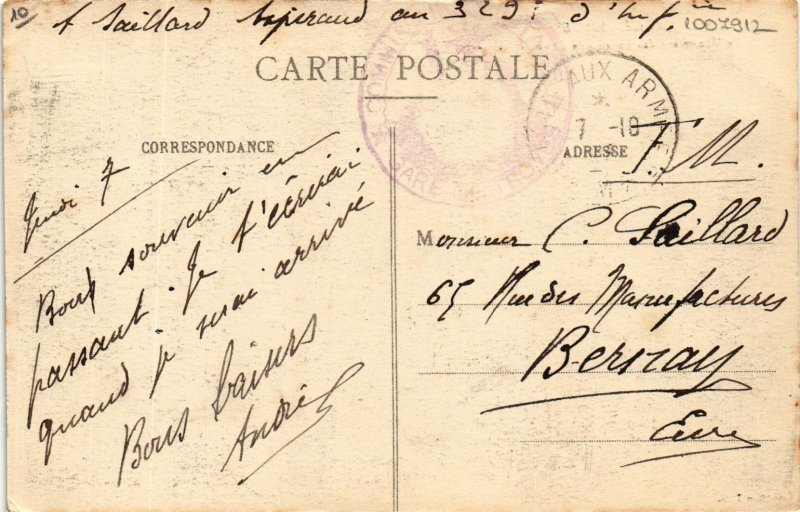 10
A Saillard Aspirand au 329e d'Inf.ie
1007912
CARTE POSTALE
AUX ARMÉES
7 -10
GARE
CORRESPONDANCE
ADRESSE
F. M.
Jeudi 7
Bons souvenir en
passant. Je t'écrirai
quand je serai arrivé
Bons baisers
André
Monsieur C. Saillard
65 Rue des Manufactures
Bernay
Eure